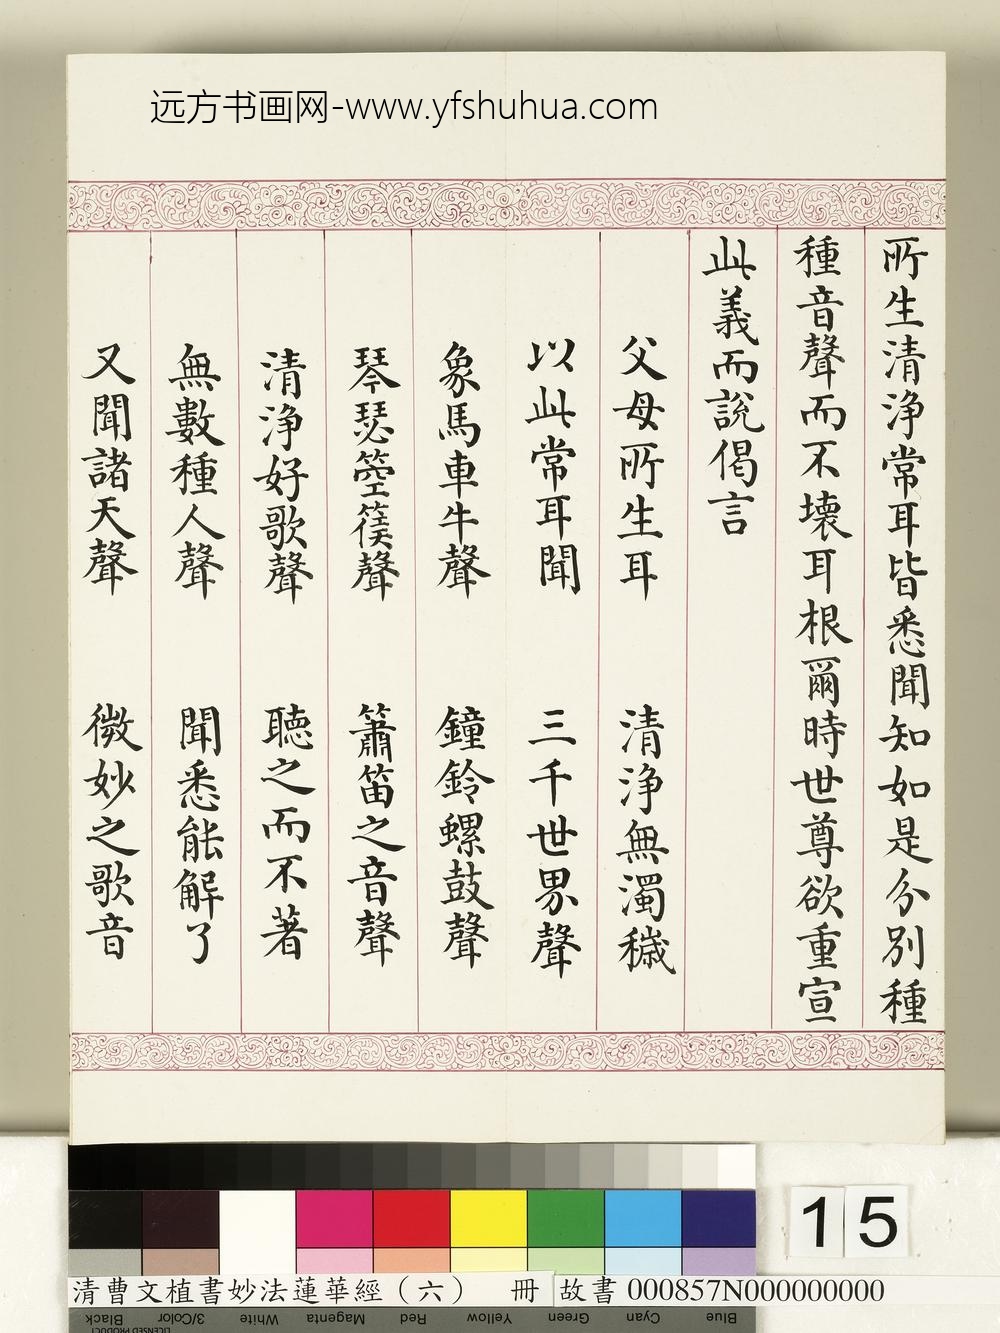 远方书画网-www.yfshuhua.com
所生清淨常耳皆悉聞知如是分別種
種音聲而不壞耳根爾時世尊欲重宣
此義而說偈言
父母所生耳 清淨無濁穢
以此常耳聞 三千世界聲
象馬車牛聲 鐘鈴螺鼓聲
琴瑟箜篌聲 簫笛之音聲
清淨好歌聲 聽之而不著
無數種人聲 聞悉能解了
又聞諸天聲 微妙之歌音
15
清曹文植書妙法蓮華經（六） 冊 故書 000857N000000000
Black 3/Color White Magenta Red Yellow Green Cyan Blue
LICENSED PRODUCT